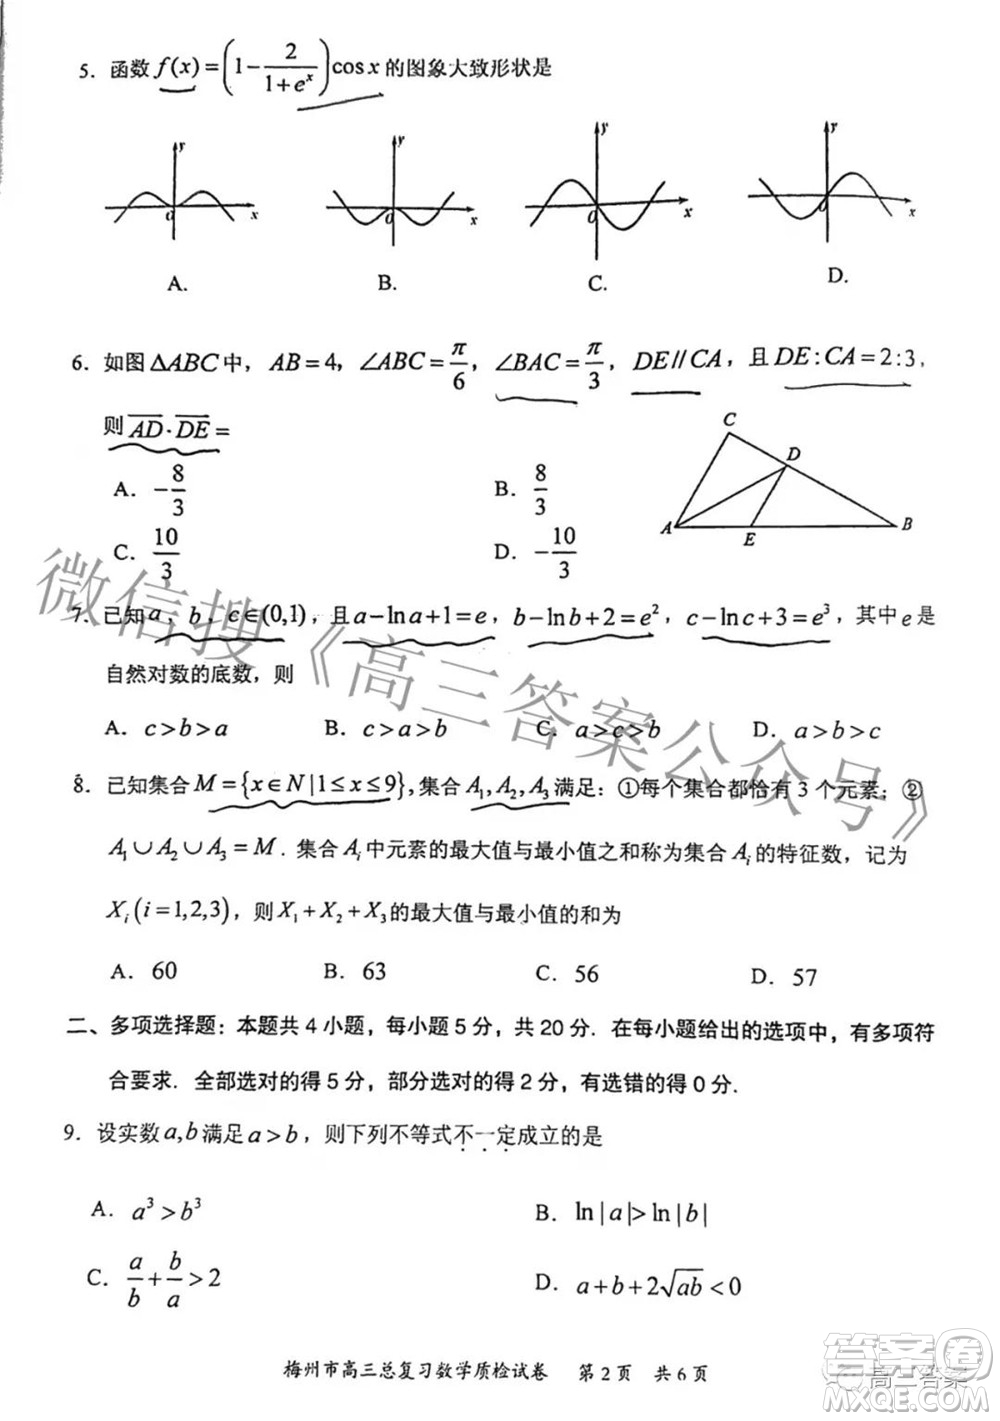 5．函数 f(x)=(1-2/(1+e^x))cosx 的图象大致形状是
y y y y
O x O x O x O x
A. B. C. D.
6．如图ΔABC中，AB=4，∠ABC=π/6，∠BAC=π/3，DE//CA，且DE:CA=2:3，
则AD·DE=
C
D
A E B
A．-8/3 B．8/3
C．10/3 D．-10/3
7．已知a，b，c∈(0,1)，且a-lna+1=e，b-lnb+2=e²，c-lnc+3=e³，其中e是
自然对数的底数，则
A．c>b>a B．c>a>b C．a>c>b D．a>b>c
8．已知集合M={x∈N|1≤x≤9}，集合A₁,A₂,A₃满足：①每个集合都恰有3个元素；②
A₁∪A₂∪A₃=M．集合Aᵢ中元素的最大值与最小值之和称为集合Aᵢ的特征数，记为
Xᵢ(i=1,2,3)，则X₁+X₂+X₃的最大值与最小值的和为
A．60 B．63 C．56 D．57
二、多项选择题：本题共4小题，每小题5分，共20分．在每小题给出的选项中，有多项符
合要求．全部选对的得5分，部分选对的得2分，有选错的得0分．
9．设实数a,b满足a>b，则下列不等式不一定成立的是
A．a³>b³ B．ln|a|>ln|b|
C．a/b+b/a>2 D．a+b+2√ab<0
梅州市高三总复习数学质检试卷 第2页 共6页
微信搜《高三答案公众号》
答案圈
高三答案
MXQE.COM